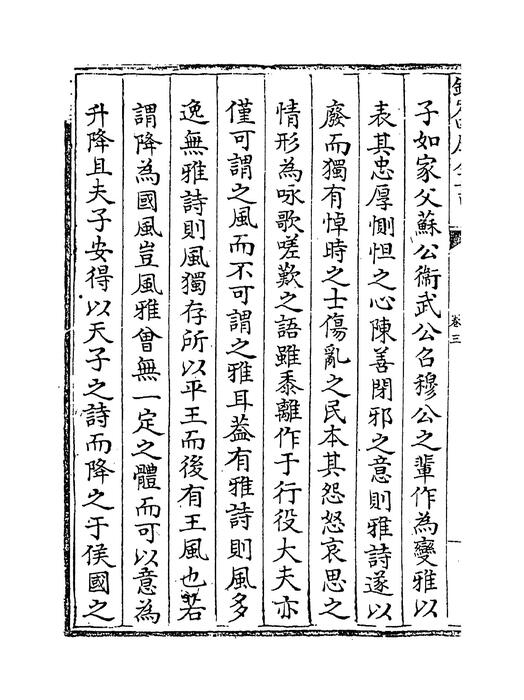 子如家父蘇公衞武公召穆公之輩作為變雅以
表其忠厚惻怛之心陳善閉邪之意則雅詩遂以
廢而獨有悼時之士傷亂之民本其怨怒哀思之
情形為咏歌嗟歎之語雖黍離作于行役大夫亦
僅可謂之風而不可謂之雅耳葢有雅詩則風多
逸無雅詩則風獨存所以平王而後有王風也若
謂降為國風豈風雅曾無一定之體而可以意為
升降且夫子安得以天子之詩而降之于侯國之
卷三